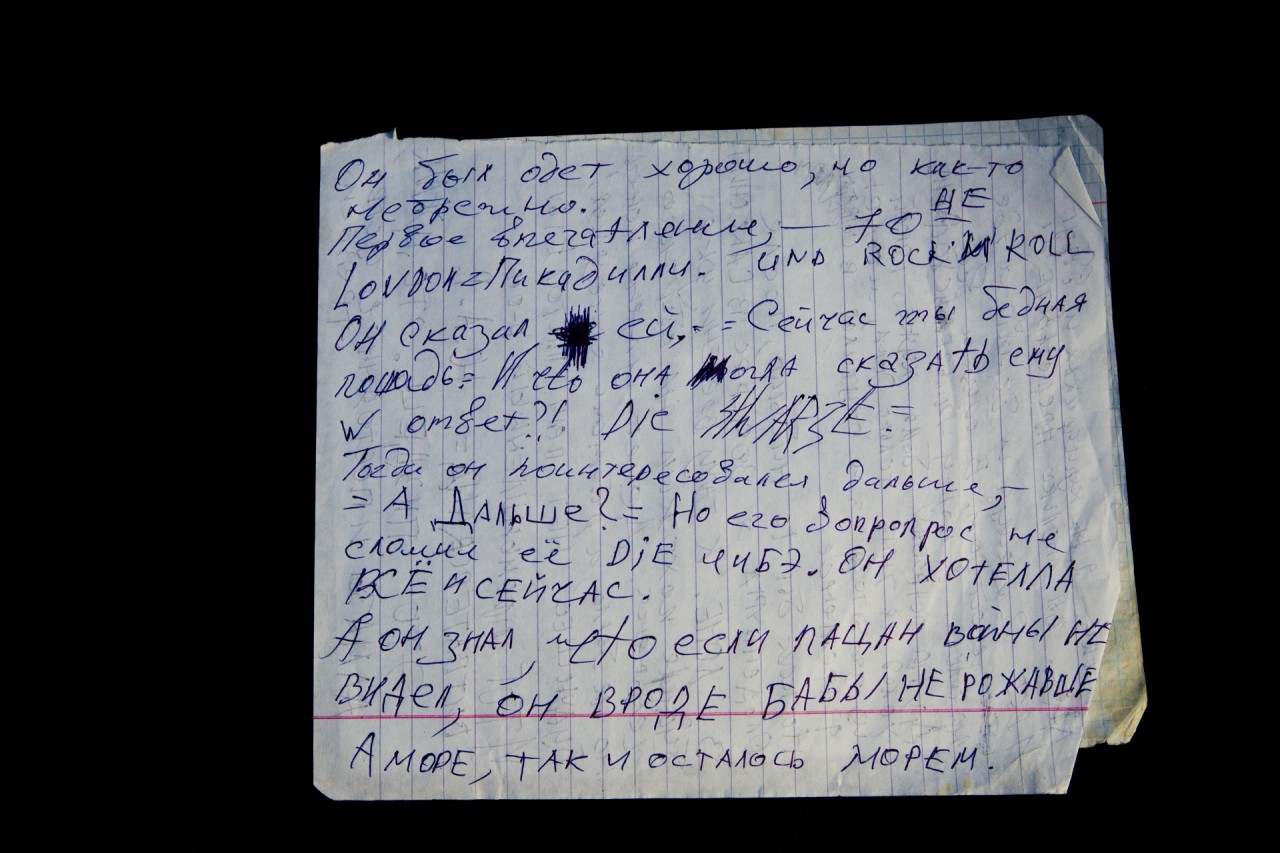 Он был одет хорошо, но как-то
небрежно.
Первое впечатление, — 70 НЕ
LONDON=Пикадилли. UND ROCK'N ROLL
ОН сказал ей, - = Сейчас ты бедная
лошадь= И что она могла сказать ему
W ответ?! Dje =
Тогда он поинтересовался дальше, —
= А Дальше? = Но его Вопропрос не
сломил её DjE ЧИБЭ. ОН ХОТЕЛЛА
ВСЁ И СЕЙЧАС.
А ОН ЗНАЛ, что если ПАЦАН ВОЙНЫ НЕ
ВИДЕЛ, ОН ВРОДЕ БАБЫ НЕ РОЖАВШЕ
А МОРЕ, ТАК И ОСТАЛОСЬ МОРЕМ.